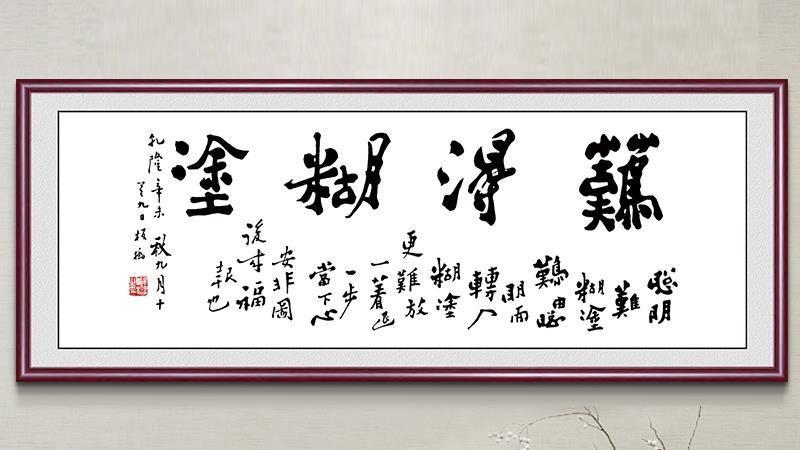 難得糊塗
聰明
難
糊塗
難由聰
明而
轉入
糊塗
更難放
一著退
一步
當下心
安非圖
後來福
報也
乾隆辛未秋九月十
又九日板橋